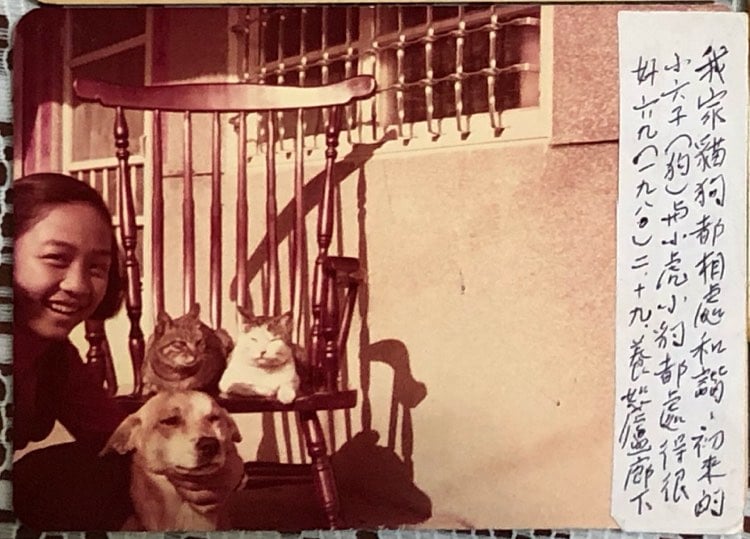 我家貓狗都相處和諧，初來的
小六子（狗）与小虎小豹都處得很
好 六九（一九八〇）二．十九．養鴛廬廊下